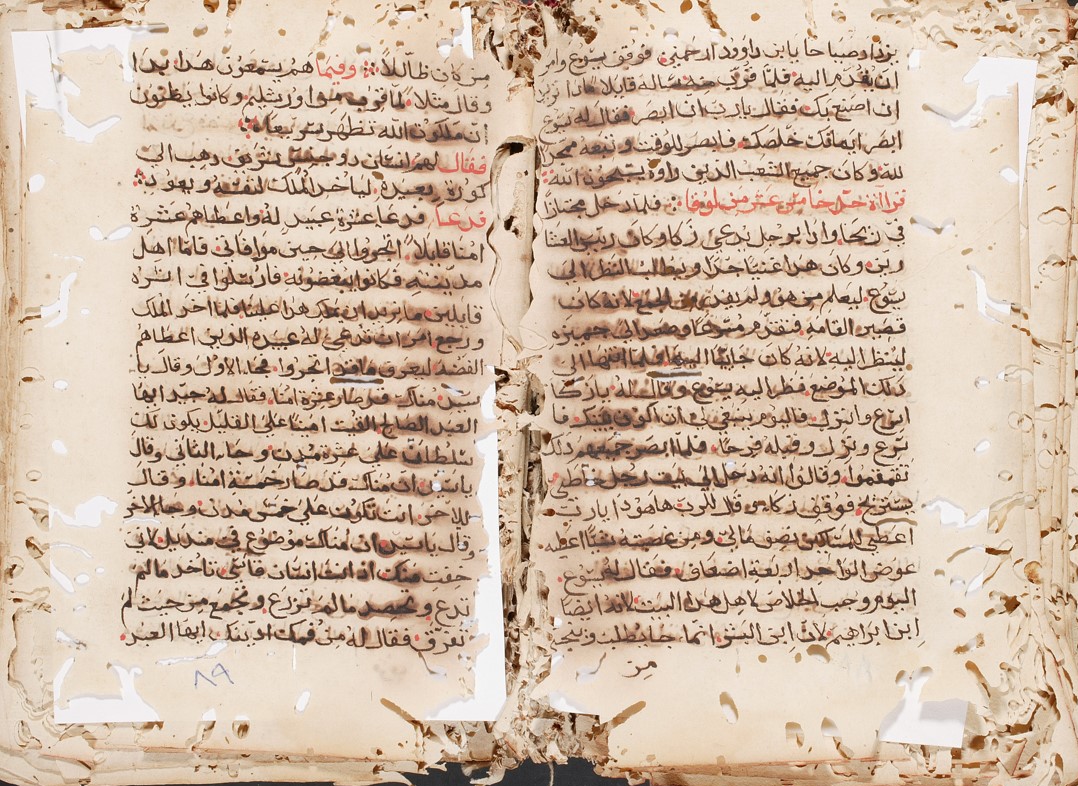 يزداد صياحا يا بن داوود ارحمني فوقف يسوع وامر
ان يقدم اليه فلما قرب منه ساله قايلا ماذا تريد
ان اصنع بك فقال يارب ان ابصر فقال له يسوع
ابصر ايمانك خلصك فابصر للوقت وتبعه ممجدا
لله وكان جميع الشعب الذين راوه يسبحون الله
قرااة من لوقا فلما دخل مجتازا
في ريحا واذا برجل يدعي زكا وكان رييس العشا
رين وكان هذا غنيا جدا ويطلب النظر الي
يسوع ليعلم من هو ولم يقدر من الجمع لانه كان
قصير القامه فتقدم مسرعا وصعد الي جميزه
لينظر اليه لانه كان جايزا فلما انتها الي
ذلك الموضع نظر اليه يسوع وقال له يا زكا
اسرع وانزل فاليوم ينبغي لي ان اكون في بيتك فا
سرع ونزل وقبله فرحا فلما ابصر جميعهم ذلك
تقمقموا وقالوا انه دخل الي بيت رجل خاطي
يستريح فوقف زكا وقال للرب هاهوذا يارب
اعطي للمساكين نصف مالي ومن غصبته شيا اعطيه
عوض الواحد اربعة اضعاف فقال له يسوع
اليوم وجب الخلاص لاهل هذا البيت لانه ايضا
ابن ابراهيم لان ابن البشر انما جا يطلب وينجي
من
من كان ضالا وفيما هم يسمعون هذا بدا
وقال مثلا لما قرب من اورشليم وكانوا يظنون
ان ملكوت الله تظهر سريعا
فقال ان انسان ذو جنس شريف ذهب الي
كورة بعيده لياخذ الملك لنفسه ويعود
فدعا عشرة عبيد له واعطاهم عشرة
امنا قايلا اتجروا الي حين موافاتي فاما اهل
مدينته فكانوا يبغضونه فارسلوا في اثره
قايلين ما نريد ان يملك هذا علينا فلما اخذ الملك
ورجع امر ان تدعي له عبيده الذين اعطاهم
الفضه ليعرف اتجروا فجا الاول وقال يا
سيد مناك قد صار عشرة امنا فقال له جيدا ايها
العبد الصالح الفيت امينا علي القليل يكون لك
سلطان علي عشرة مدن وجا الثاني وقال
ياسيد ان مناك قد صار خمسة امنا وقال
للاخر انت تكون علي خمس مدن وجا الاخر
وقال ياسيد ان مناك موضوع في منديل لاني
خفت منك اذ انت انسان قاسي تاخذ ما لم
تدع وتحصد ما لم تزرع وتجمع من حيث لم
تفرق فقال له من فمك ادينك ايها العبد
٨٩